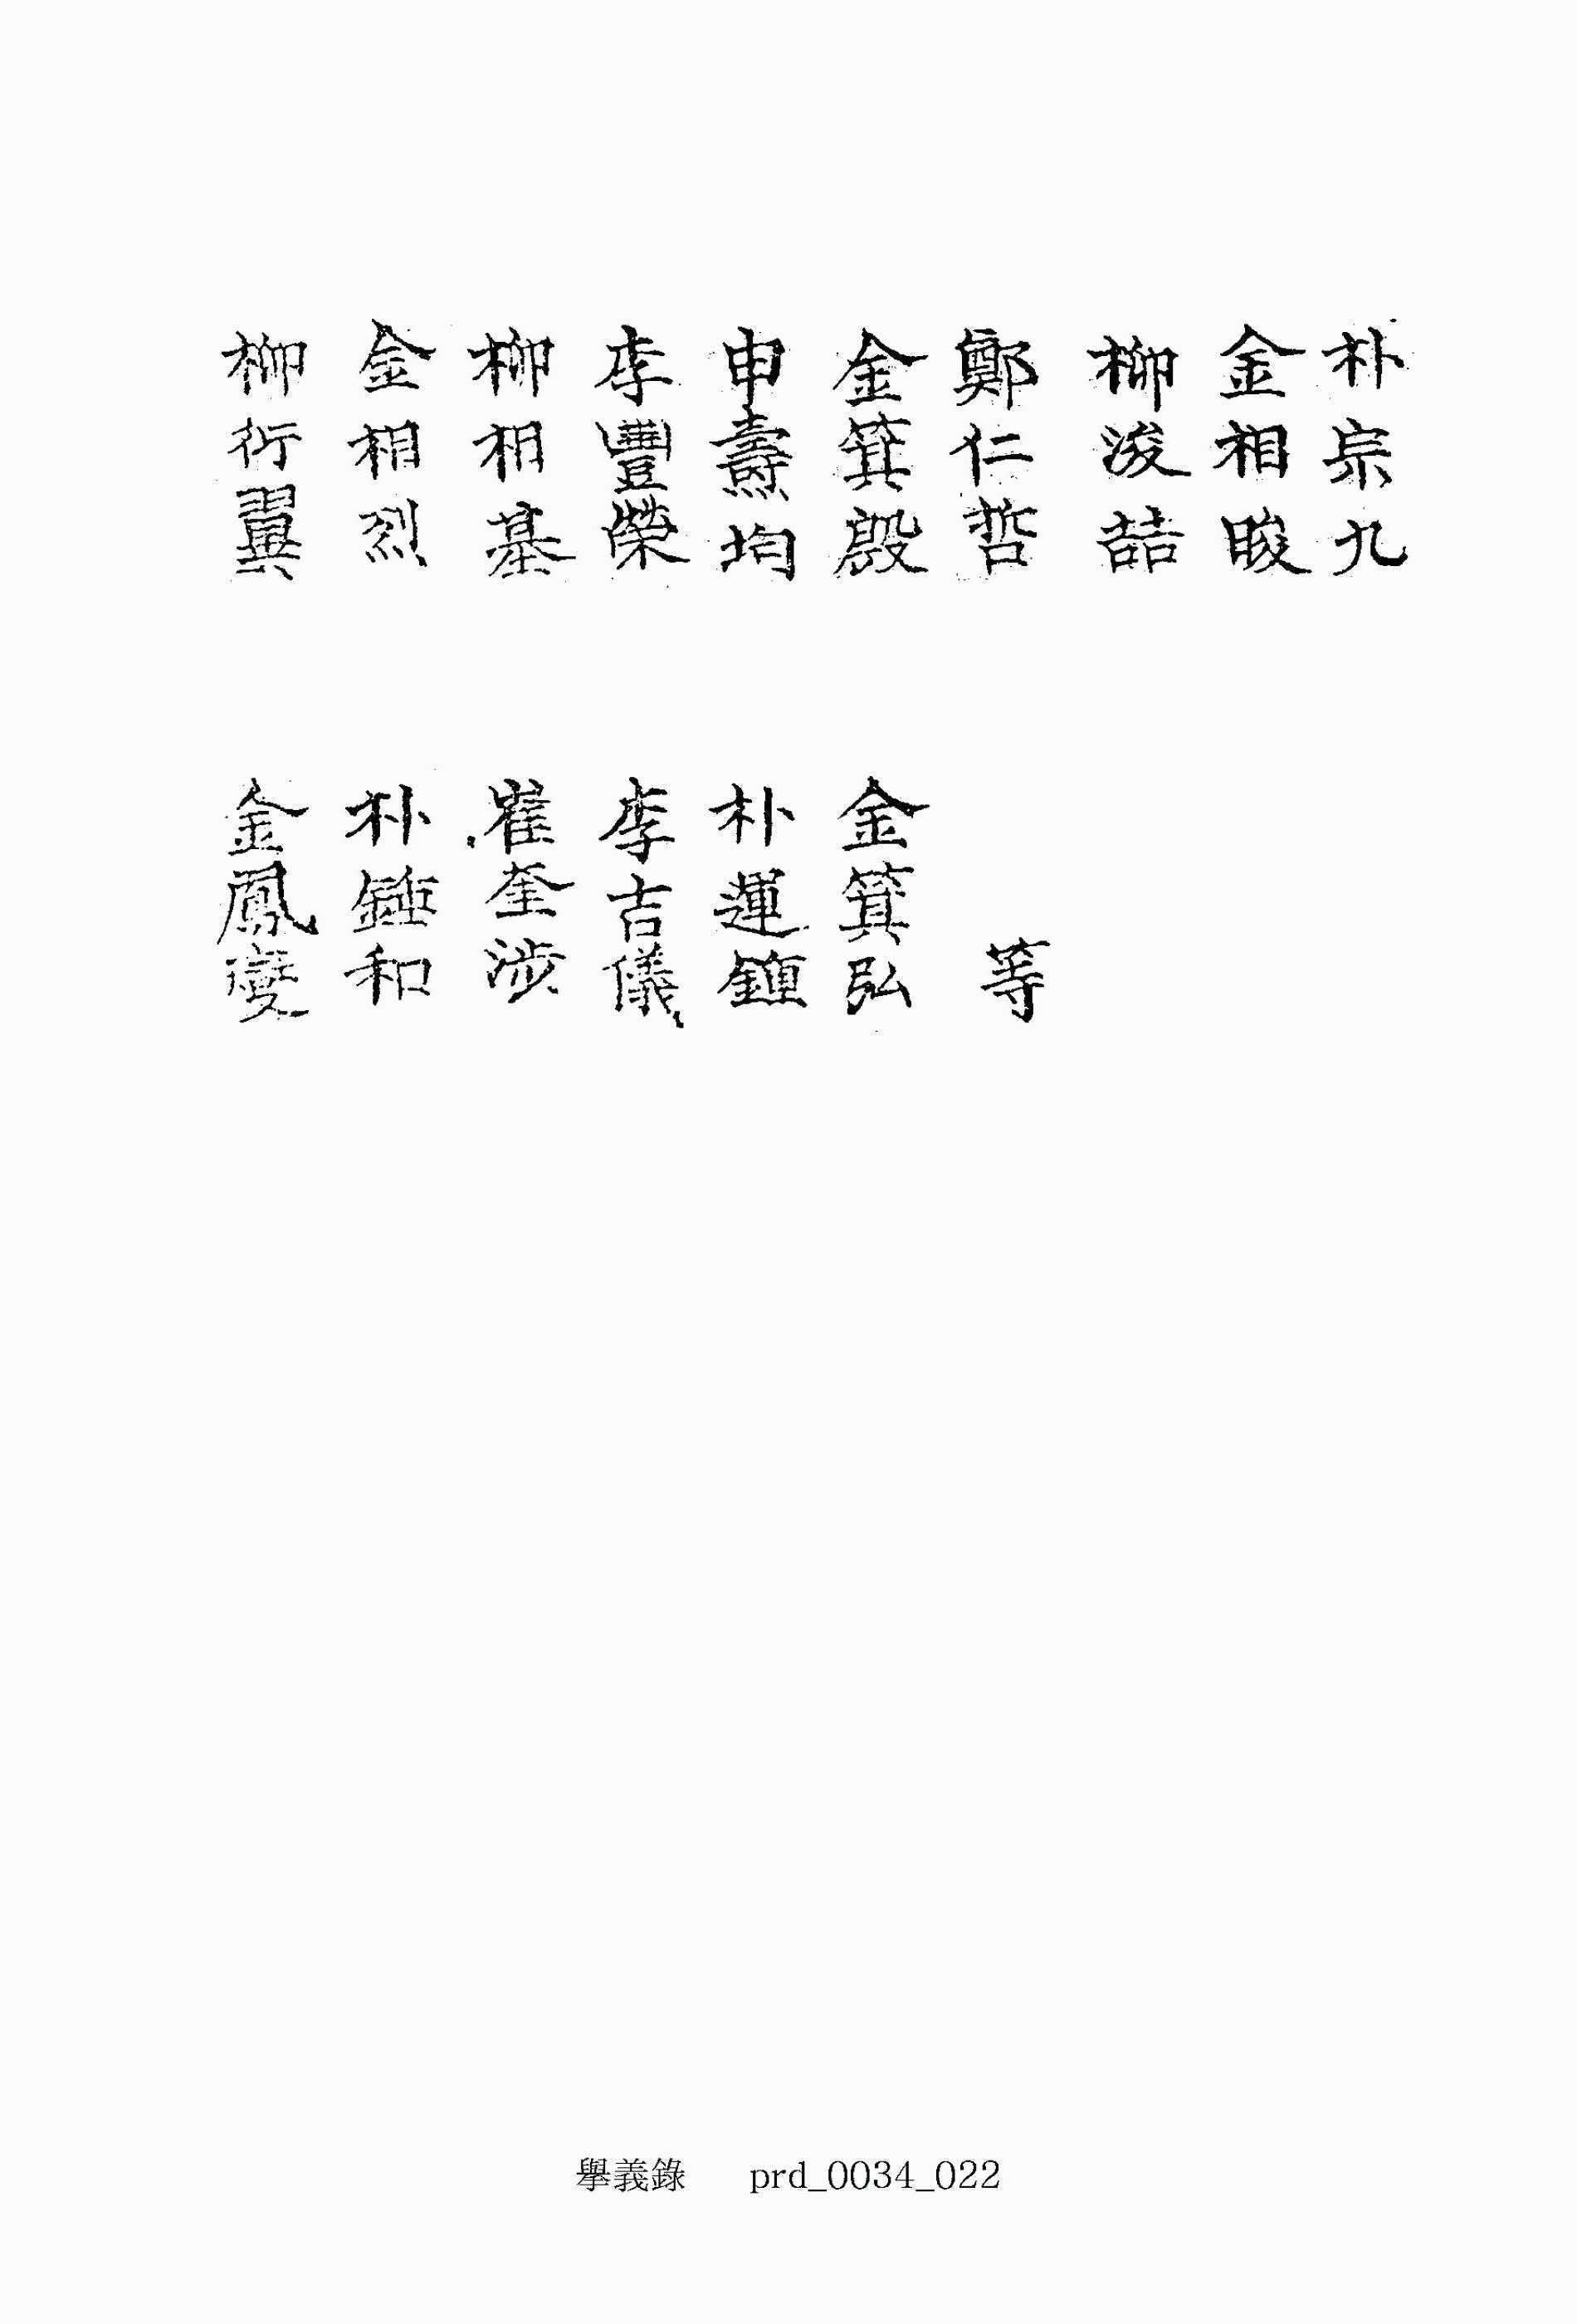 朴宗九
金相晙
柳浚喆
鄭仁哲 等
金箕殷 金箕弘
申燾均 朴蓮鍾
李豐榮 李吉儀
柳相基 崔奎涉
金相烈 朴鍾和
柳衍翼 金鳳燮
擧義錄 prd_0034_022